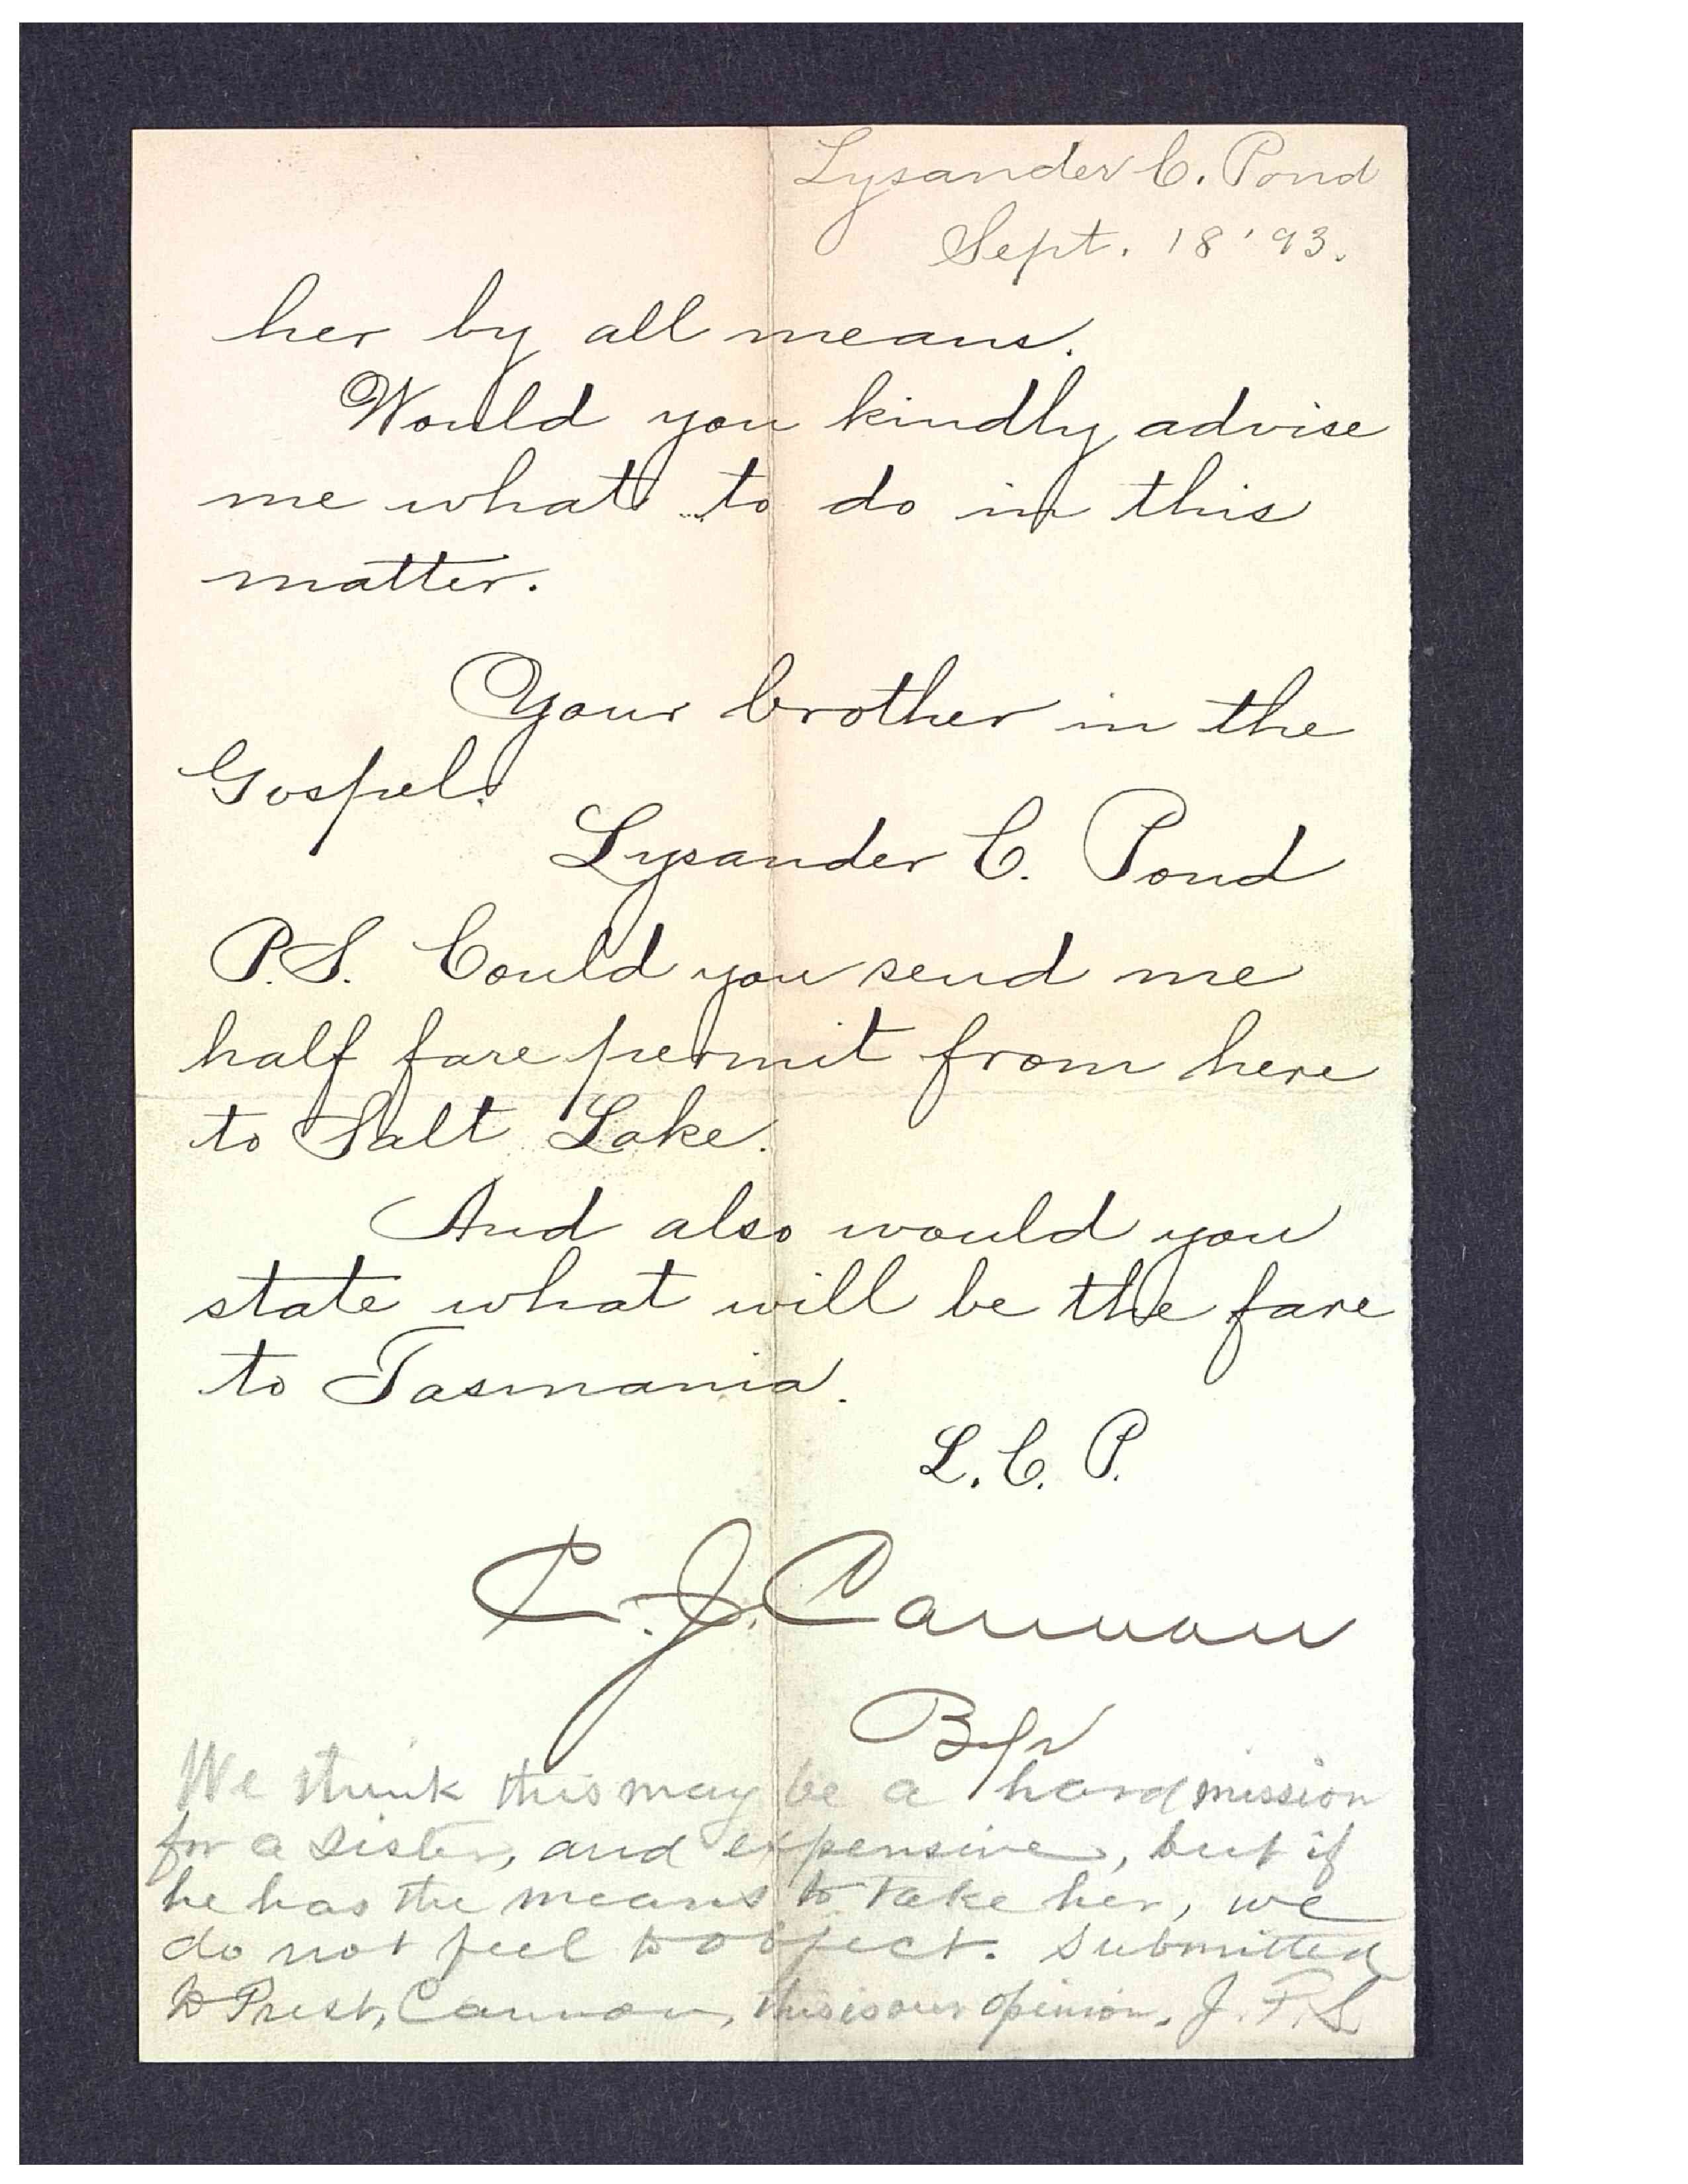 Lysander C. Pond
Sept. 18 '93.
her by all means.
Would you kindly advise
me what to do in this
matter.
Your brother in the
Gospel.
Lysander C. Pond
P.S. Could you send me
half fare permit from here
to Salt Lake.
And also would you
state what will be the fare
to Tasmania.
L. C. P.
C. J. Cannon
Bp
We think this may be a hard mission
for a sister, and expensive, but if
he has the means to take her, we
do not feel to object. Submitted
to Prest, Cannon, this is our opinion. J. F. S.